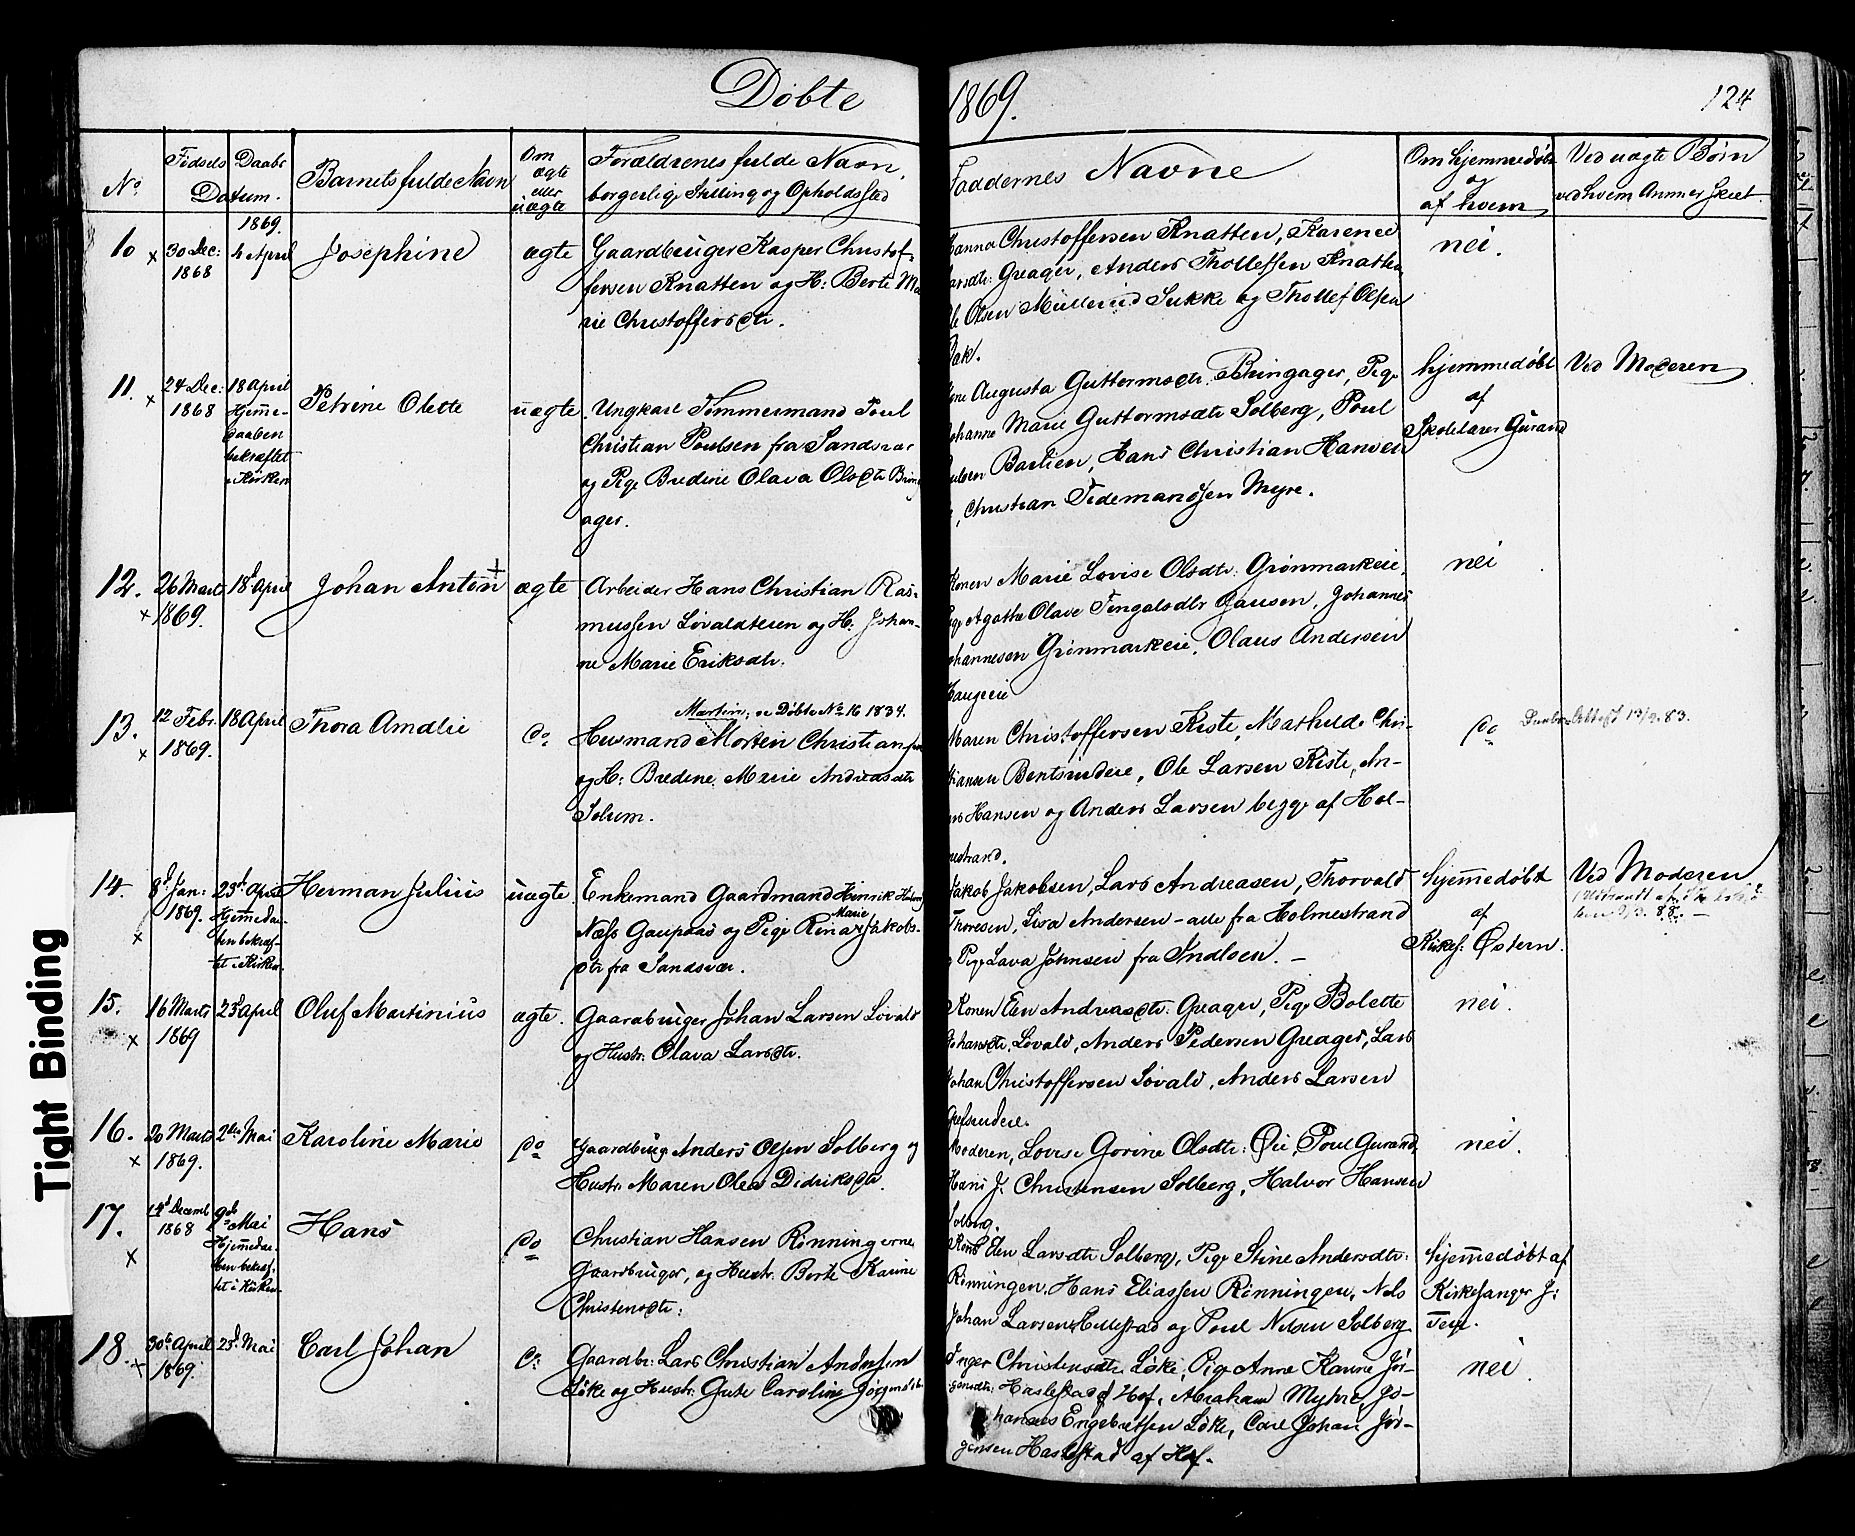 Døbte 1869. 124
No
Fødsels Daabs
Datum.
Barnets fulde Navn
Om ægte eller uægte
Forældrenes fulde Navn,
borgerlige Stilling og Opholdssted
Faddernes Navne
Om hjemmedøbt
og
af hvem
Ved uægte Børn
ved hvem Anmeldt
1869.
10 × 30 Dec: 1868 4 April Josephine ægte
Gaardbruger Kasper Christof-
fersen Knatten og H: Berte Ma
rie Christoffersdtr.
Christoffersen Knatten, Karen
Greager, Anders Thollefsen Knatten
Olsen Møllerud Sukke og Thollef Olsen
nei.
11. × 24 Dec: 1868 18 April
Hjemme-
daaben
bekræftet
i Kirken
Petrine Olette uægte
Ungkarl Tømmermand Poul
Christian Poulsen fra Sandsvær
og Pige Bredine Olava Olsdtr Bring
ager.
Augusta Guttormsdtr. Bringager, Pige
Johanne Marie Guttormsdtr Solberg, Poul
Hans Christian Hansen
Christian Tidemandsen Myre.
hjemmedøbt
af
Skolelærer Gurand
Ved Moderen
12. × 26 Mart 1869. 18d April Johan Anton + ægte
Arbeider Hans Christian Ras-
mussen Løvaldteien og H: Johan-
ne Marie Eriksdtr.
Konen Marie Lovise Olsdtr: Grønmarkeie,
Pige Agathe Olave Johannes
Johannesen Grønmarkeie, Olaus Andersen
Haugeeie
nei
13. × 12 Febr. 1869. 18 April Thora Amalie do
Martin, se Døbte No 16 1834.
Husmand Morten Christiansen
og H: Bredine Marie Andreasdtr
Solum.
Maren Christoffersen Kiste, Mathilde Chri-
stiansen Bentsrudeie, Ole Larsen Kiste, An-
Hansen og Anders Larsen begge af Hol-
mestrand.
do
83.
14. × 8d Jan: 1869. 23d April
Hjemmedaa-
ben bekræf-
tet i Kirken
Herman Julius uægte
Enkemand Gaardmand Henrik
Næss Gaupaas og Pige Rina Marie Jakobs-
dtr fra Sandsvær.
Jakob Jakobsen, Lars Andreasen, Thorvald
Thoresen, Lisa Andersen - alle fra Holmestrand
og Pige Lava Johnsen fra Indlsen. -
hjemmedøbt
af
Kirkes: Østern.
Ved Moderen
15. × 16 Marts 1869 23d April Oluf Martinius ægte.
Gaardbruger Johan Larsen Løvald
og Hustr. Olava Larsdtr.
Konen Elen Andreasdtr. Greager, Pige Bolette
Johansdtr. Løvald, Anders Pedersen Greager, Lars
Johan Christoffersen Løvald, Anders Larsen
nei.
16. × 20 Marts 1869. 2den Mai Karoline Marie do
Gaardbrug Anders Olsen Solberg og
Hustr. Maren Olea Didriksdtr.
Moderen, Lovise Gorine Olsdtr: Øie, Poul Gurand,
Hans J. Christensen Solberg, Halvor Hansen
Solberg.
nei.
17. × 14d Decembr 1868 Mai
Hjemmedaa-
ben bekræf-
tet i Kirken
Hans do
Christian Hansen Rønningerne
Gaardbruger, og Hustr. Berte Karine
Christensdtr:
Kone Elen Larsdtr Solberg, Pige Stine Andersdtr:
Rønningen, Hans Eliassen Rønningen, Nels
Johan Larsen Hillestad og Poul Nilsen Solberg
hjemmedøbt af
Kirkesanger J:
18. × 30te April 1869. 23d Mai Carl Johan do
Gaardbr: Lars Christian Andersen
Løke og Hustr. Gute Caroline Jørgensdtr
Inger Christensdtr Løke, Pige Anne Karine Jør-
gensdtr: Haslestad af Hof, Abraham Myhre, Jo-
hannes Engebretsen Løke, Carl Johan Jør-
gensen Haslestad af Hof.
nei.
Tight Binding